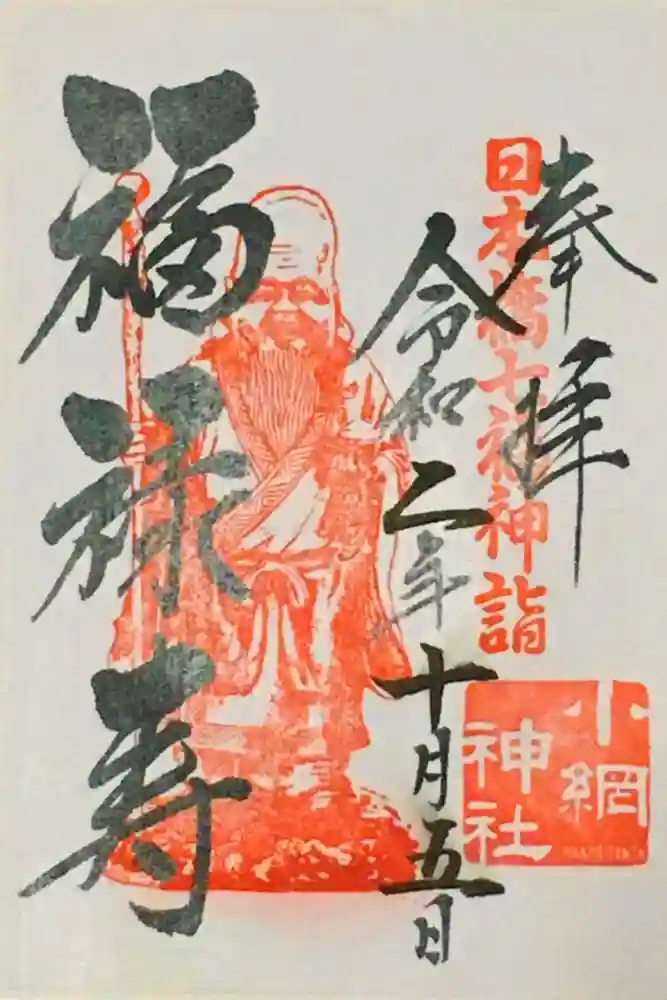 奉拝
日本橋七福神詣
小網
神社
令和二年十月五日
福禄寿